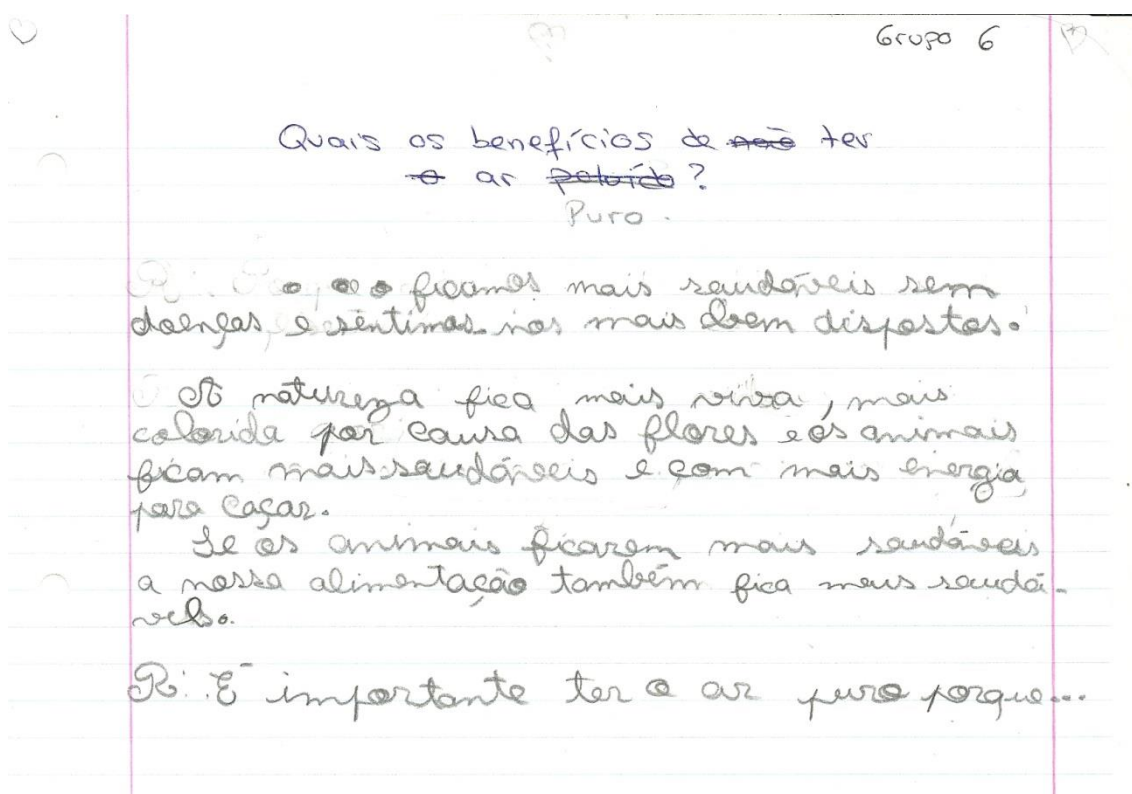 Grupo 6
Quais os benefícios de não ter
o ar poluído?
Puro.
ficamos mais saudáveis sem
doenças, e sentimos-nos mais bem dispostos.
A natureza fica mais viva, mais
colorida por causa das flores e os animais
ficam mais saudáveis e com mais energia
para caçar.
Se os animais ficarem mais saudáveis
a nossa alimentação também fica mais saudá-
vel.
R: É importante ter o ar puro porque...